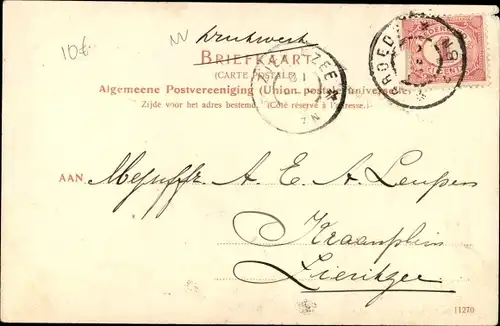 Drukwerk
10€
BRIEFKAART
(CARTE POSTALE)
Algemeene Postvereeniging (Union postale universelle)
Zijde voor het adres bestemd. (Côté réservé à l'adresse.)
AAN
Mejuffr. A. E. A. Leupen
Kraanplein
Zierikzee
11270